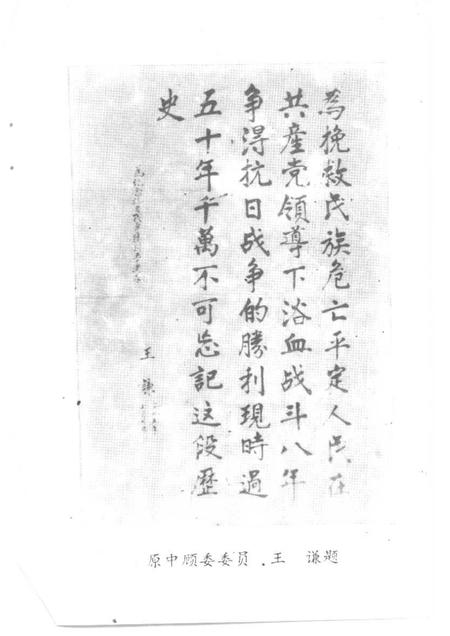 為挽救民族危亡平定人民在
共產党領導下浴血战斗八年
争得抗日战争的勝利現時過
五十年千萬不可忘記这段歷
史
王 謙
原中顾委委员 . 王 谦题